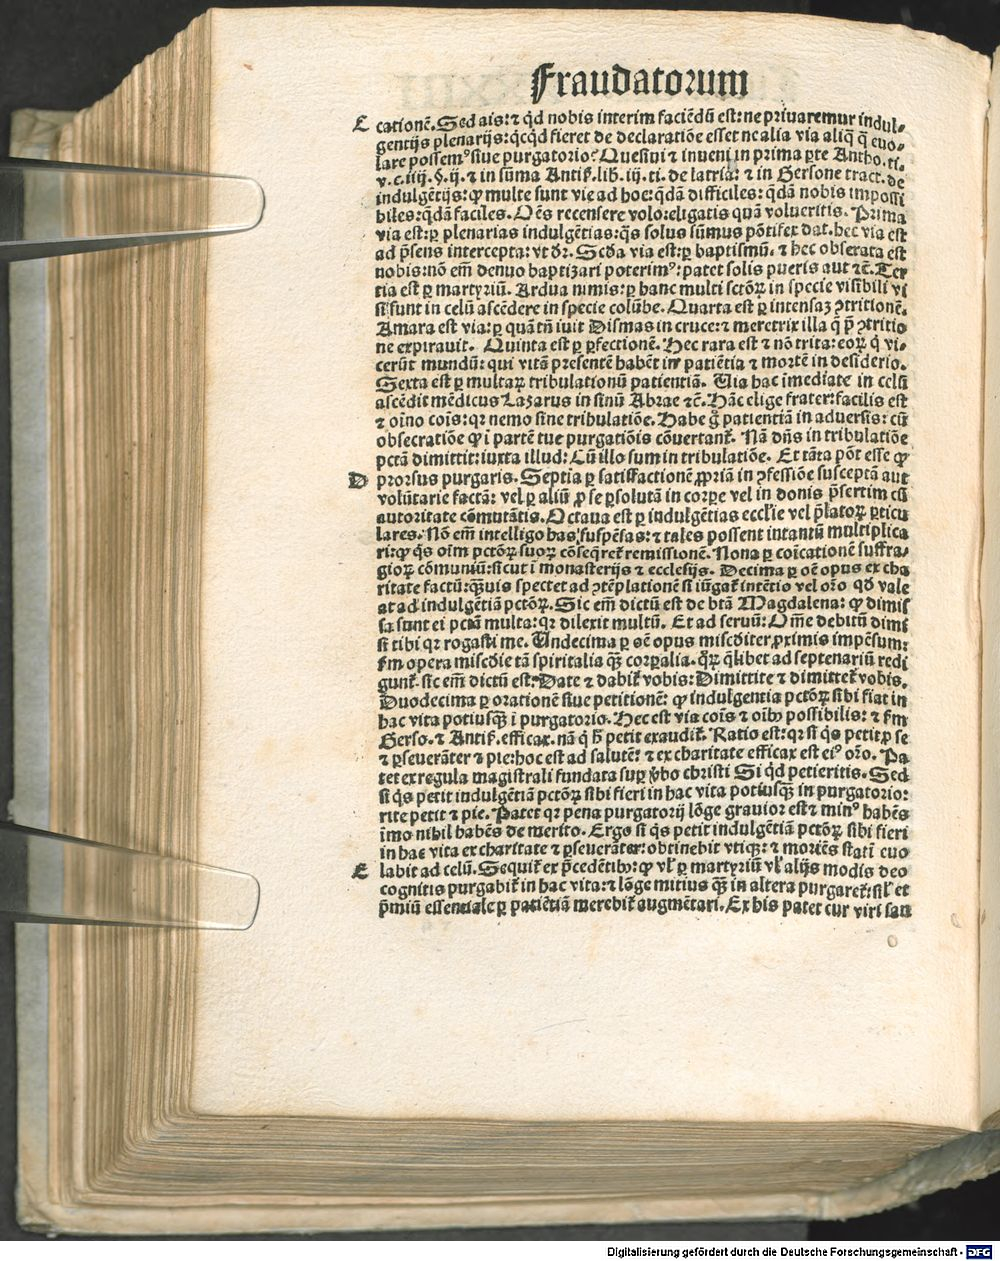 Fraudatorum
C cationē. Sed ais: ⁊ qd nobis interim faciēdū est: ne priuaremur indul⸗
gentijs plenarijs: qcqd fieret de declaratiōe esset ne alia via aliq̄ q̄ euo⸗
lare possemꝰ siue purgatorio? Quesiui ⁊ inueni in prima ꝑte Antho. ti.
v. c. iiij. §. ij. ⁊ in sūma Antiß. lib. iij. ti. de latria: ⁊ in Gersone tract. de
indulgētijs: ꝙ multe sunt vie ad hoc: q̄dā difficiles: q̄dā nobis impossi
biles: q̄dā faciles. Oēs recensere volo: eligatis quā volueritis. Prima
via est: ꝑ plenarias indulgētias: q̄s solus sūmus pōtifex dat. hec via est
ad p̄sens intercepta: vt dr̄. Scd̄a via est: ꝑ baptismū. ⁊ hec obserata est
nobis: nō em̄ denuo baptizari poterimꝰ: patet solis pueris aut ⁊c̄. Ter
tia est ꝑ martyriū. Ardua nimis: ꝑ hanc multi sctōꝝ in specie visibili vi
si sunt in celū ascēdere in specie colūbe. Quarta est ꝑ intensaꝫ ꝯtritionē.
Amara est via: ꝑ quā tn̄ iuit Dismas in cruce: ⁊ meretrix illa q̄ p̄ ꝯtritio
ne expirauit. Quinta est ꝑ ꝑfectionē. Hec rara est ⁊ nō trita: eoꝝ q̇ vi⸗
cerūt mundū: qui vitā presentē habēt in patiētia ⁊ mortē in desiderio.
Sexta est ꝑ multaꝝ tribulationū patientiā. Via hac īmediate in celū
ascēdit mēdicus Lazarus in sinū Abrae ⁊c̄. Hāc elige frater: facilis est
⁊ oīno coīs: qꝛ nemo sine tribulatiōe. Habe g̊ patientiā in aduersis: cū
obsecratiōe ꝙ ī partē tue purgatiōis cōuertant᷑. Nā dn̄s in tribulatiōe
pctā dimittit: iuxta illud: Cū illo sum in tribulatiōe. Et tāta pōt esse ꝙ
D prorsus purgaris. Septīa ꝑ satisfactionē ꝓpriā in ꝯfessiōe susceptā aut
volūtarie factā: vel ꝑ aliū ꝓ se ꝑsolutā in corꝑe vel in donis p̄sertim cū
autoritate cōmutātis. Octaua est ꝑ indulgētias eccl'ie vel p̄latoꝝ ꝑticu
lares. Nō em̄ intelligo has suspēsas: ⁊ tales possent intantū multiplica
ri: ꝙ q̇s oīm pctōꝝ suoꝝ cōseq̄ret᷑ remissionē. Nona ꝑ coīcationē suffra⸗
gioꝝ cōmuniū: sicut ī monasterijs ⁊ ecclesijs. Decima ꝑ oē opus ex cha
ritate factū: qꝫuis spectet ad ꝯtēplationē si iūgat᷑ intētio vel oro qd vale
at ad indulgētiā pctōꝝ. Sic em̄ dictū est de btā Magdalena: ꝙ dimis
sa sunt ei pctā multa: qꝛ dilexit multū. Et ad seruū: Ome debitū dimi
si tibi qꝛ rogasti me. Undecima ꝑ oē opus misc̄diter ꝓximis impēsum:
fm opera misc̄die tā spiritalia qꝫ corꝑalia. q̄ꝝ q̄libet ad septenariū redi
gunt᷑. sic em̄ dictū est: Date ⁊ dabit᷑ vobis: Dimittite ⁊ dimittet᷑ vobis.
Duodecima ꝑ orationē siue petitionē: ꝙ indulgentia pctōꝝ sibi fiat in
hac vita potiusqꝫ ī purgatorio. Hec est via coīs ⁊ oībꝰ possibilis: ⁊ fm
Gerso. ⁊ Antiß. efficax. nā q̇ h̄ petit exaudit᷑. Ratio est: qꝛ si q̇s petit ꝓ se
⁊ ꝑseuerāter ⁊ pie: hoc est ad salutē: ⁊ ex charitate efficax est eiꝰ oro. Pa
tet ex regula magistrali fundata suꝑ v̄bo christi Si qd petieritis. Sed
si q̇s petit indulgētiā pctōꝝ sibi fieri in hac vita potiusqꝫ in purgatorio:
rite petit ⁊ pie. Patet qꝛ pena purgatorij lōge grauior est ⁊ minꝰ habēs
īmo nihil habēs de merito. Ergo si q̇s petit indulgētiā pctōꝝ sibi fieri
in hac vita ex charitate ⁊ ꝑseuerāter: obtinebit vtiqꝫ: ⁊ moriēs statī euo
E labit ad celū. Sequit᷑ ex p̄cedētibꝰ: ꝙ vl' ꝑ martyriū vl' alijs modis deo
cognitis purgabit᷑ in hac vita: ⁊ lōge mitius qꝫ in altera purgaret᷑: sil' et
p̄miū essentiale ꝑ patiētiā merebit᷑ augmētari. Ex his patet cur viri san
Digitalisierung gefördert durch die Deutsche Forschungsgemeinschaft - DFG